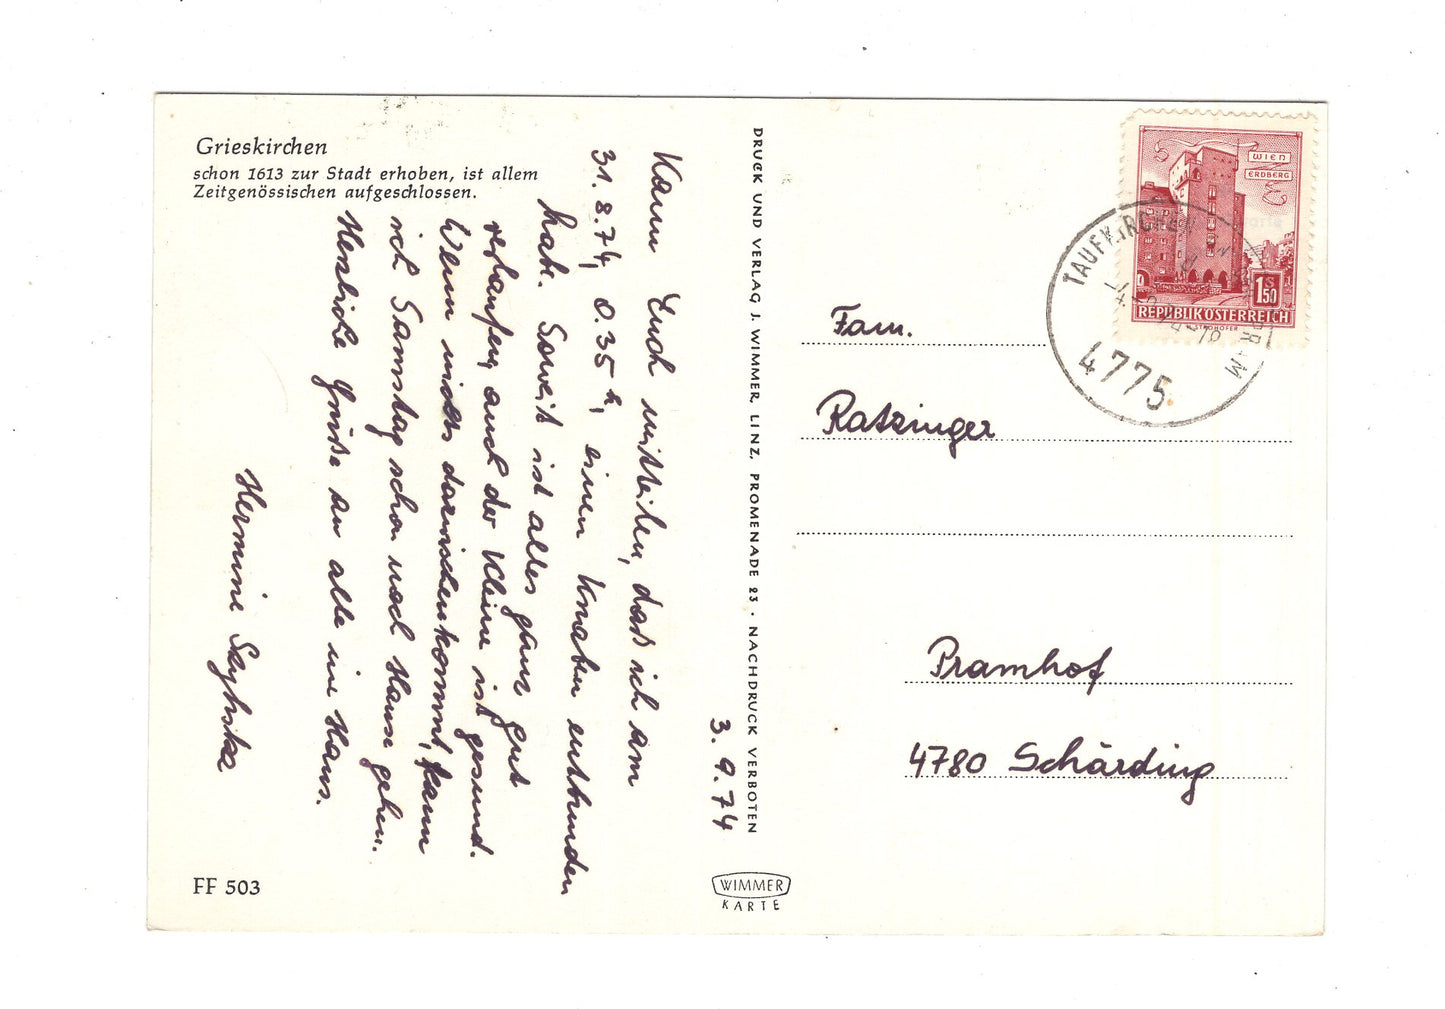 Grieskirchen
schon 1613 zur Stadt erhoben, ist allem
Zeitgenössischen aufgeschlossen.
3. 9. 74
Kann Euch mitteilen, daß ich am
31. 8. 74, 0.35 h, einen Knaben entbunden
habe. Soweit ist alles ganz gut
verlaufen, auch der Kleine ist gesund.
Wenn nichts dazwischenkommt, kann
ich Samstag schon nach Hause gehen.
Herzliche Grüße an alle im Haus.
Hermine
FF 503
DRUCK UND VERLAG J. WIMMER, LINZ, PROMENADE 23 · NACHDRUCK VERBOTEN
WIMMER
KARTE
WIEN
ERDBERG
S
1.50
REPUBLIK ÖSTERREICH
TAUFKIRCHEN PRAM
4775
Fam.
Ratzinger
Pramhof
4780 Schärding